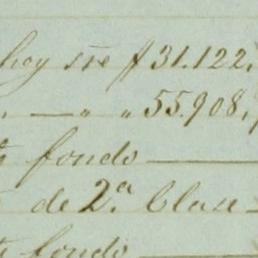 hoy sre $ 31.122.
. — " " 55.908,
fondo —
de 2.ª Clase —
fondo —